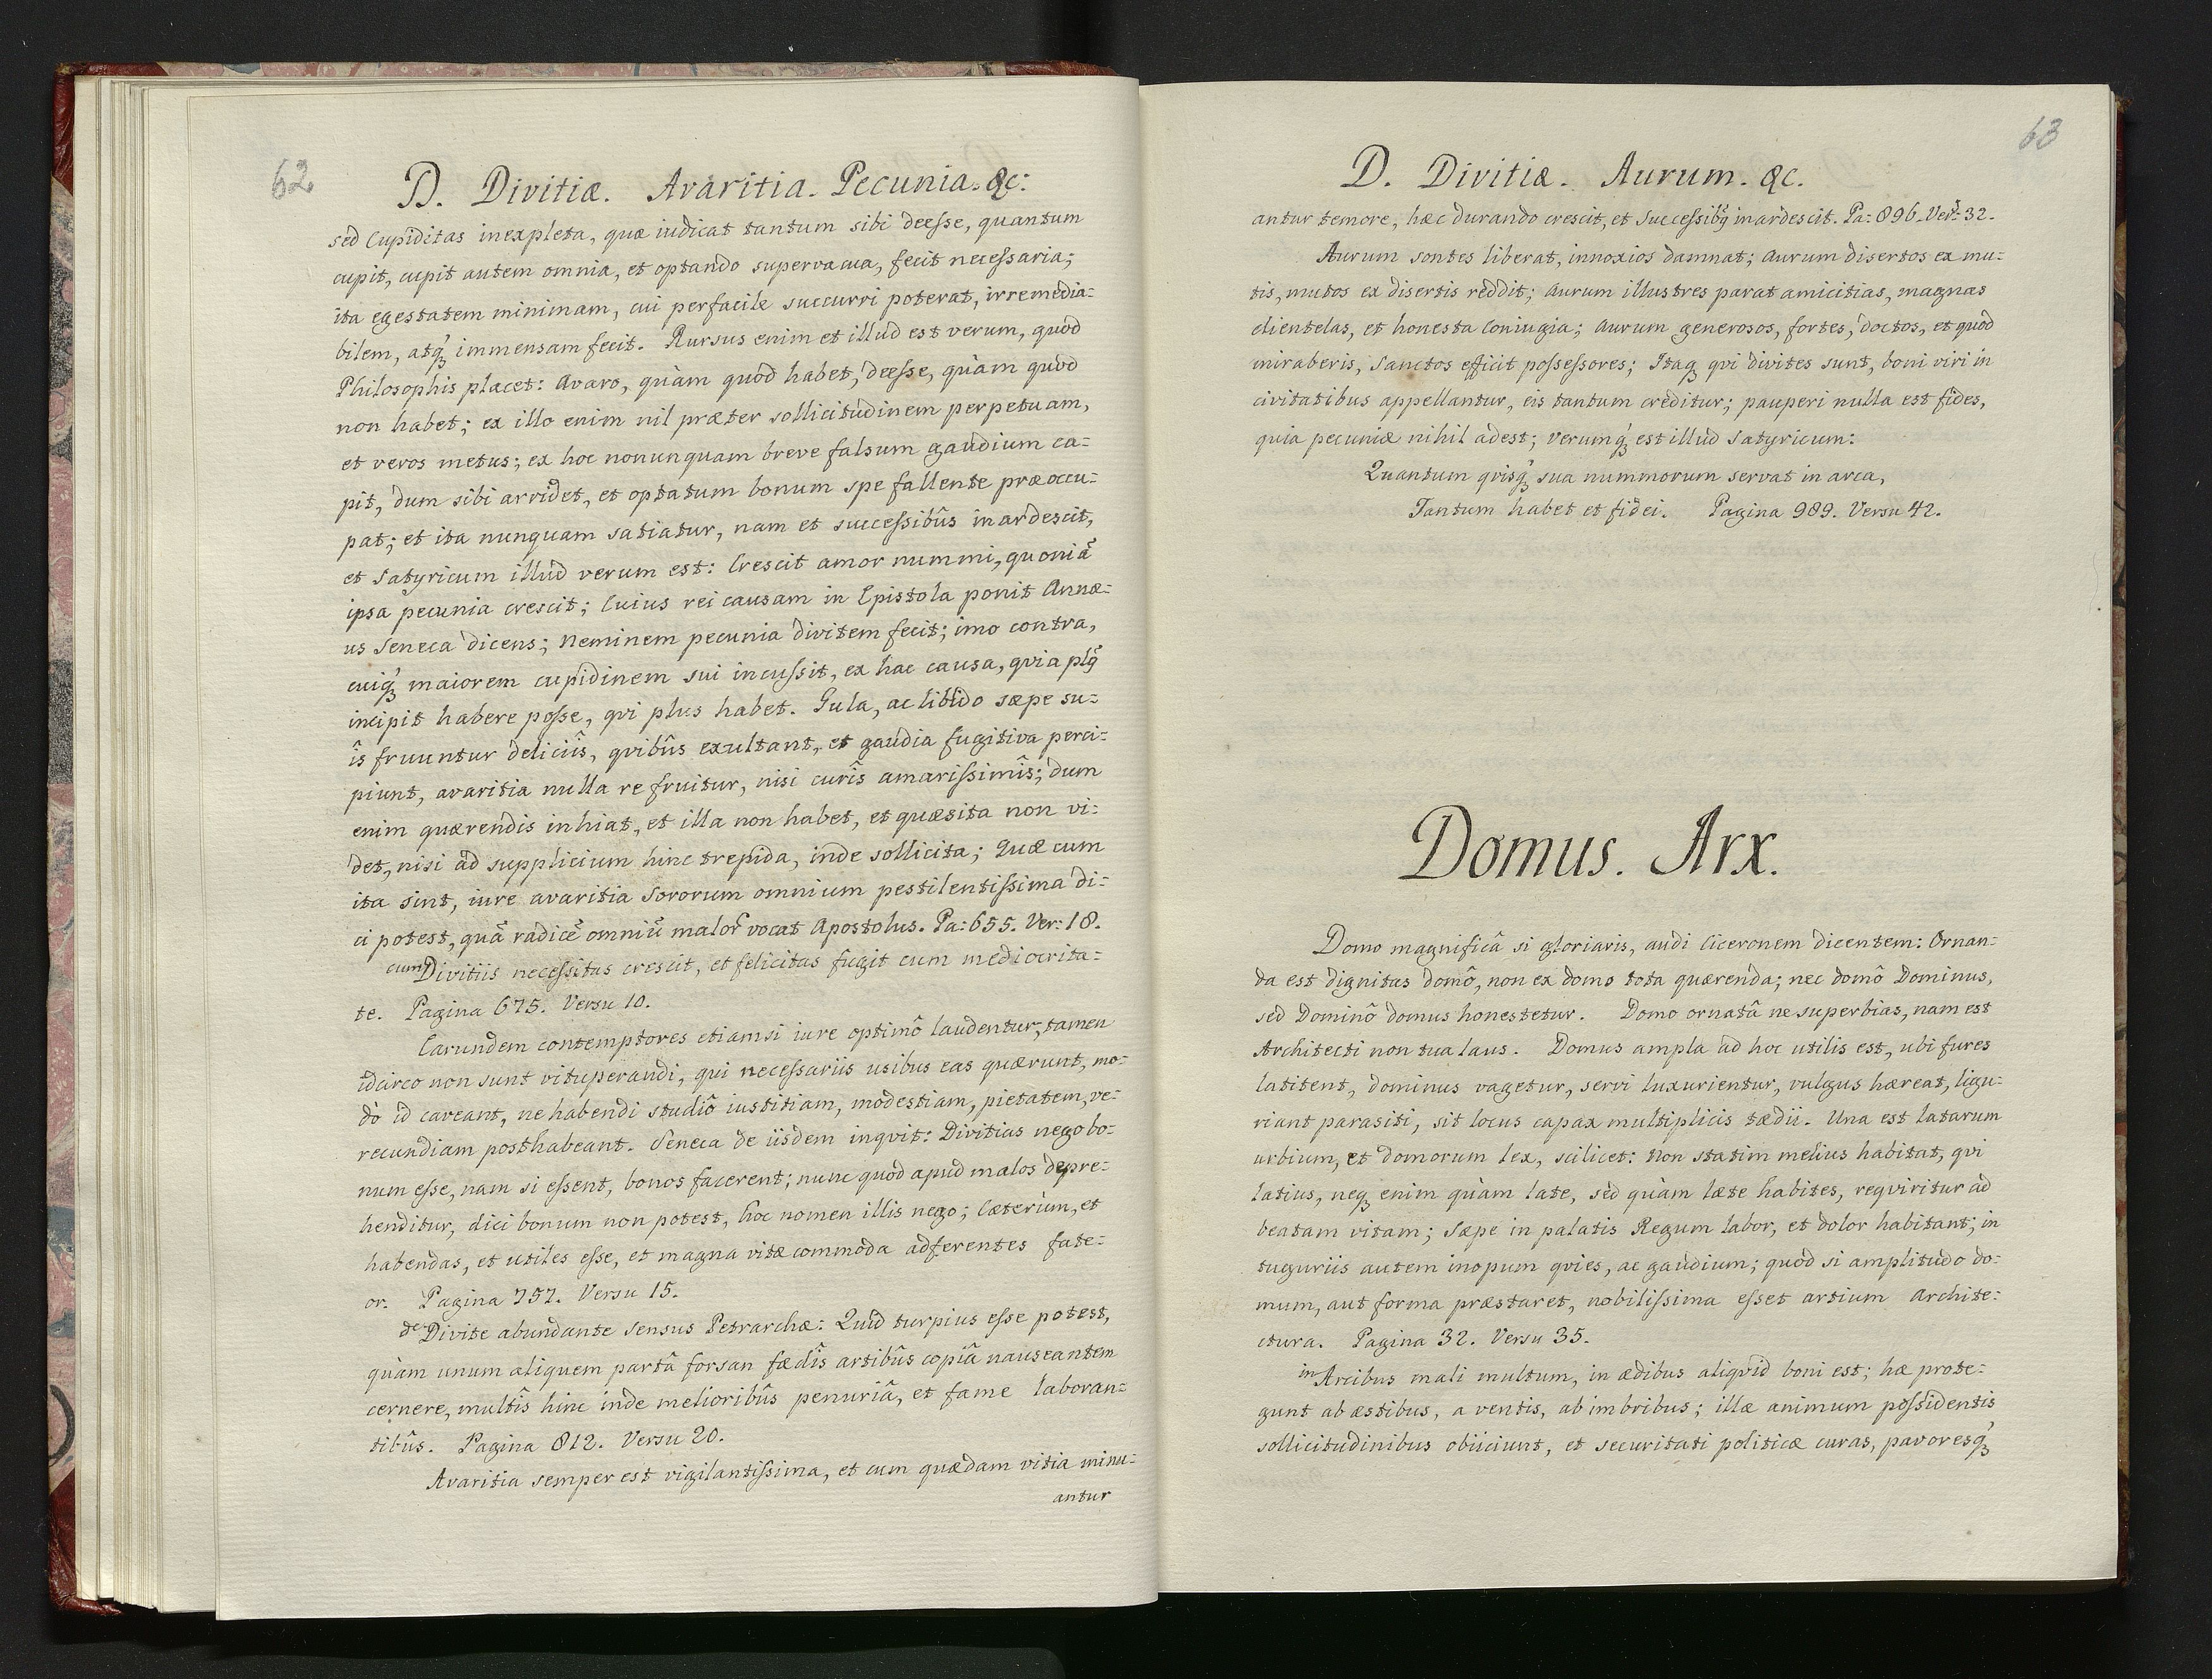 62
D. Divitiæ. Avaritia. Pecunia. &c:
sed Cupiditas inexpleta, quæ iudicat tantum sibi deesse, quantum
cupit, cupit autem omnia, et optando supervacua, fecit necessaria;
ita egestatem minimam, cui perfacile succurri poterat, irremedia=
bilem, atq́ꝫ immensam fecit. Rursus enim et illud est verum, quod
Philosophis placet: Avaro, quàm quod habet, deesse, quàm quod
non habet; ex illo enim nil præter sollicitudinem perpetuam,
et veros metus; ex hoc nonunquam breve falsum gaudium ca=
pit, dum sibi arridet, et optatum bonum spe fallente præoccu=
pat; et ita nunquam satiatur, nam et successibûs inardescit,
et Satyricum illud verum est: Crescit amor nummi, quoniã
ipsa pecunia crescit; Cuius rei causam in Epistola ponit Annæ=
us Seneca dicens; Neminem pecunia divitem fecit; imo contra,
cuiq́ꝫ maiorem cupidinem sui incussit, ex hac causa, qvia plq̃
incipit habere posse, qvi plus habet. Gula, ac libido sæpe su=
îs fruuntur deliciîs, qvibûs exultant, et gaudia fugitiva perci=
piunt, avaritia nulla re fruitur, nisi curîs amarissimîs; dum
enim quærendis inhiat, et illa non habet, et quæsita non vi=
det, nisi ad supplicium hinc trepida, inde sollicita; Quæ cum
ita sint, iure avaritia Sororum omnium pestilentissima di=
ci potest, quã radicẽ omniũ malor̃ vocat Apostolus. Pa: 655. Ver: 18.
cum Divitiis necessitas crescit, et felicitas fugit cum mediocrita=
te. Pagina 675. Versu 10.
Earundem contemptores etiamsi iure optimô laudentur, tamen
idcirco non sunt vituperandi, qui necessariis usibus eas quærunt, mo=
dò id caveant, ne habendi studiô iustitiam, modestiam, pietatem, ve=
recundiam posthabeant. Seneca de iisdem inqvit: Divitias nego bo=
num esse, nam si essent, bonos facerent; nunc quod apud malos depre=
henditur, dici bonum non potest, hoc nomen illis nego; Cæterùm, et
habendas, et utiles esse, et magna vitæ commoda adferentes fate=
or. Pagina 757. Versu 15.
de Divite abundante sensus Petrarchæ: Quid turpius esse potest,
quàm unum aliquem partâ forsan fædîs artibûs copiâ nauseantem
cernere, multîs hinc inde melioribûs penuriâ, et fame laboran=
tibûs. Pagina 812. Versu 20.
Avaritia semper est vigilantissima, et cum quædam vitia minu=
antur
63
D. Divitiæ. Aurum. &c.
antur temore, hæc durando crescit, et successibq̃ inardescit. Pa: 896. Ver: 32.
Aurum sontes liberat, innoxios damnat; Aurum disertos ex mu=
tis, mutos ex disertis reddit; Aurum illustres parat amicitias, magnas
clientelas, et honesta Coniugia; Aurum generosos, fortes, doctos, et quod
miraberis, Sanctos efficit possessores; Itaqꝫ qvi divites sunt, boni viri in
civitatibus appellantur, eis tantum creditur; pauperi nulla est fides,
quia pecuniæ nihil adest; Verumq́ꝫ est illud Satyricum:
Quantum qvisq́ꝫ sua nummorum servat in arca,
Tantum habet et fidei. Pagina 989. Versu 42.
Domus. Arx.
Domo magnificâ si gloriaris, audi Ciceronem dicentem: Ornan=
da est dignitas domô, non ex domo tota quærenda; nec domô Dominus,
sed Dominô domus honestetur. Domo ornatâ ne superbias, nam est
Architecti non tua laus. Domus ampla ad hoc utilis est, ubi fures
latitent, dominus vagetur, servi luxurientur, vulgus hæreat, ligu=
riant parasiti, sit locus capax multiplicis tædii. Una est latarum
urbium, et domorum lex, scilicet: Non statim melius habitat, qvi
latius, neqꝫ enim quàm late, sed quàm læte habites, reqviritur ad
beatam vitam; Sæpe in palatis Regum labor, et dolor habitant; in
tuguriis autem inopum qvies, ac gaudium; quod si amplitudo do=
mum, aut forma præstaret, nobilissima esset artium Archite=
ctura. Pagina 32. Versu 35.
in Arcibus mali multum, in ædibus aliqvid boni est; hæ prote=
gunt ab æstibus, a ventis, ab imbribus; illæ animum possidentis
sollicitudinibus obiiciunt, et securitati politicæ curas, pavoresq́ꝫ